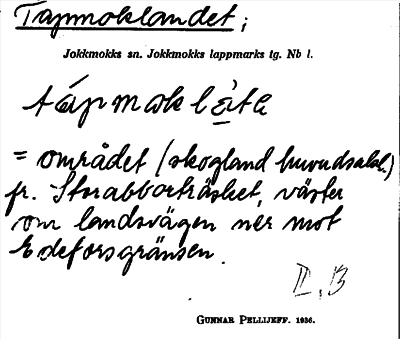 Tapmoklandet;
Jokkmokks sn. Jokkmokks lappmarks tg. Nb l.
= området (skogland huvudsakl.)
fr. Storabborträsket, väster
om landsvägen ner mot
Edeforsgränsen.
II, B
GUNNAR PELLIJEFF. 1936.